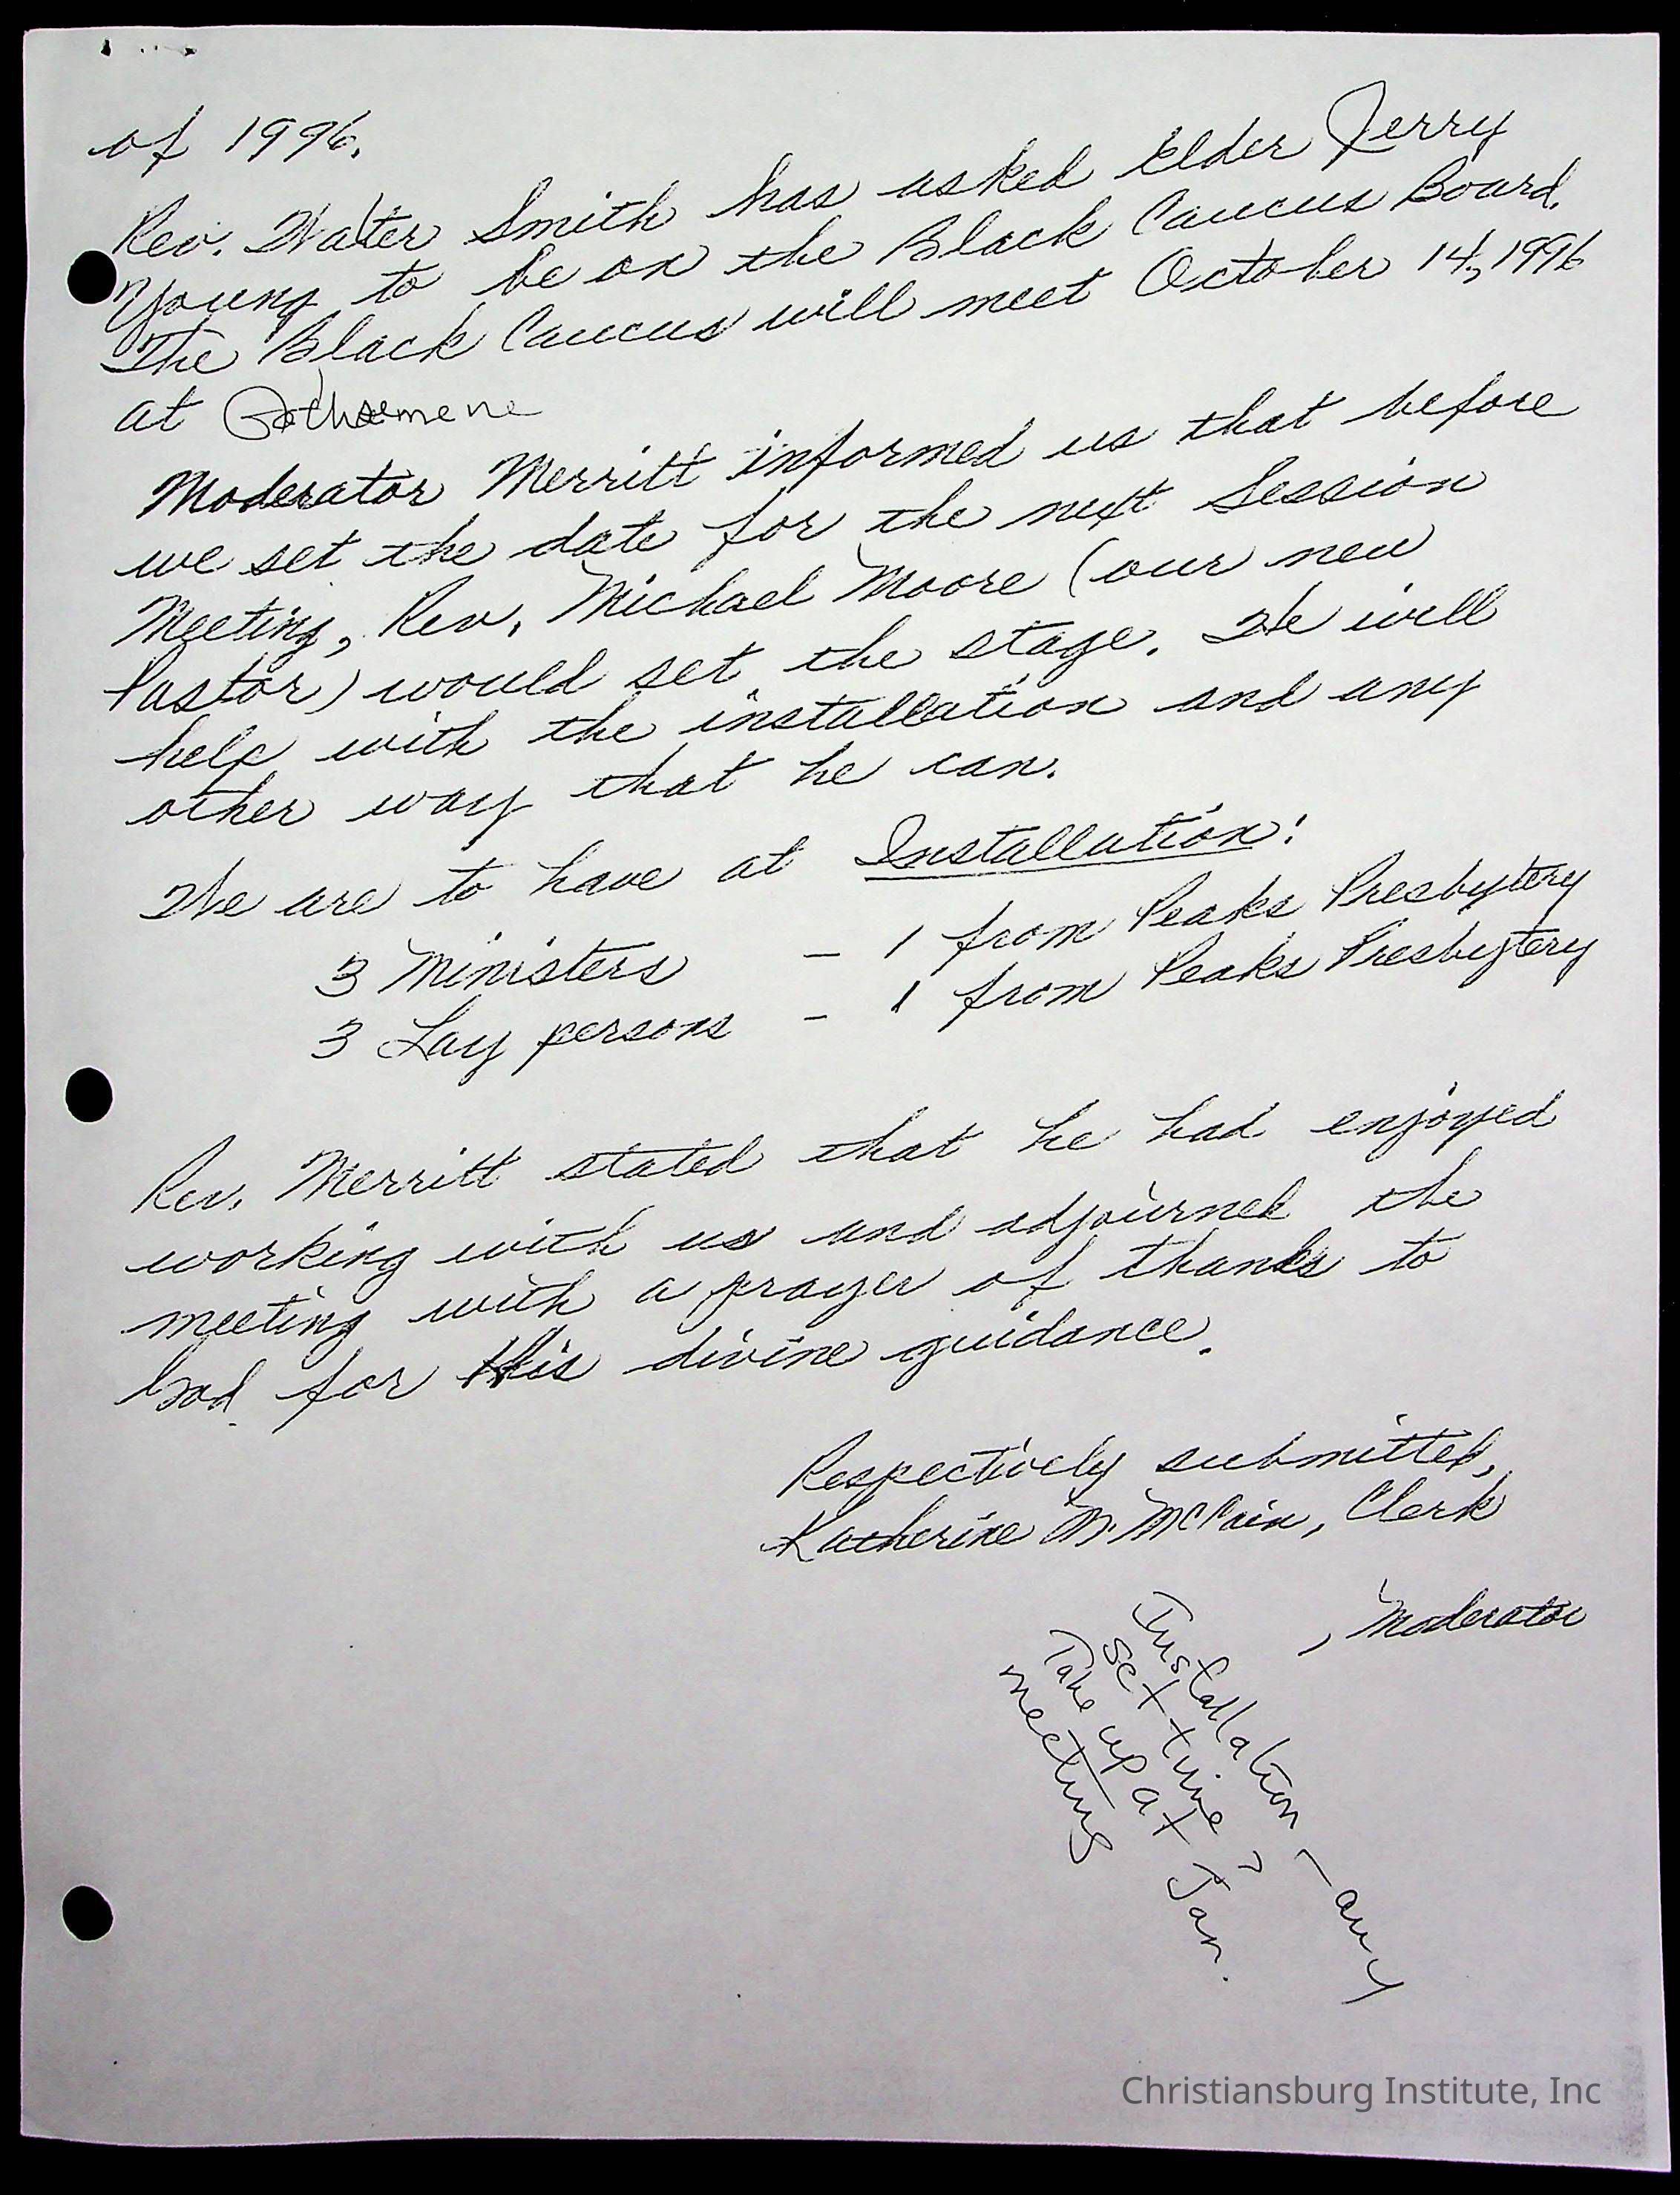 of 1996.
Rev. Walter Smith has asked Elder Jerry
Young to be on the Black Caucus Board.
The Black Caucus will meet October 14, 1996
at
Moderator Merritt informed us that before
we set the date for the next Session
Meeting, Rev. Michael Moore (our new
Pastor) would set the stage. He will
help with the installation and any
other way that he can.
We are to have at Installation:
3 Ministers - 1 from Peaks Presbytery
3 Lay persons - 1 from Peaks Presbytery
Rev. Merritt stated that he had enjoyed
working with us and adjourned the
meeting with a prayer of thanks to
God for His divine guidance.
Respectively submitted,
Katherine M. McCain, Clerk
, Moderator
Installation - any
set time?
Take up at Jan.
meeting
Christiansburg Institute, Inc